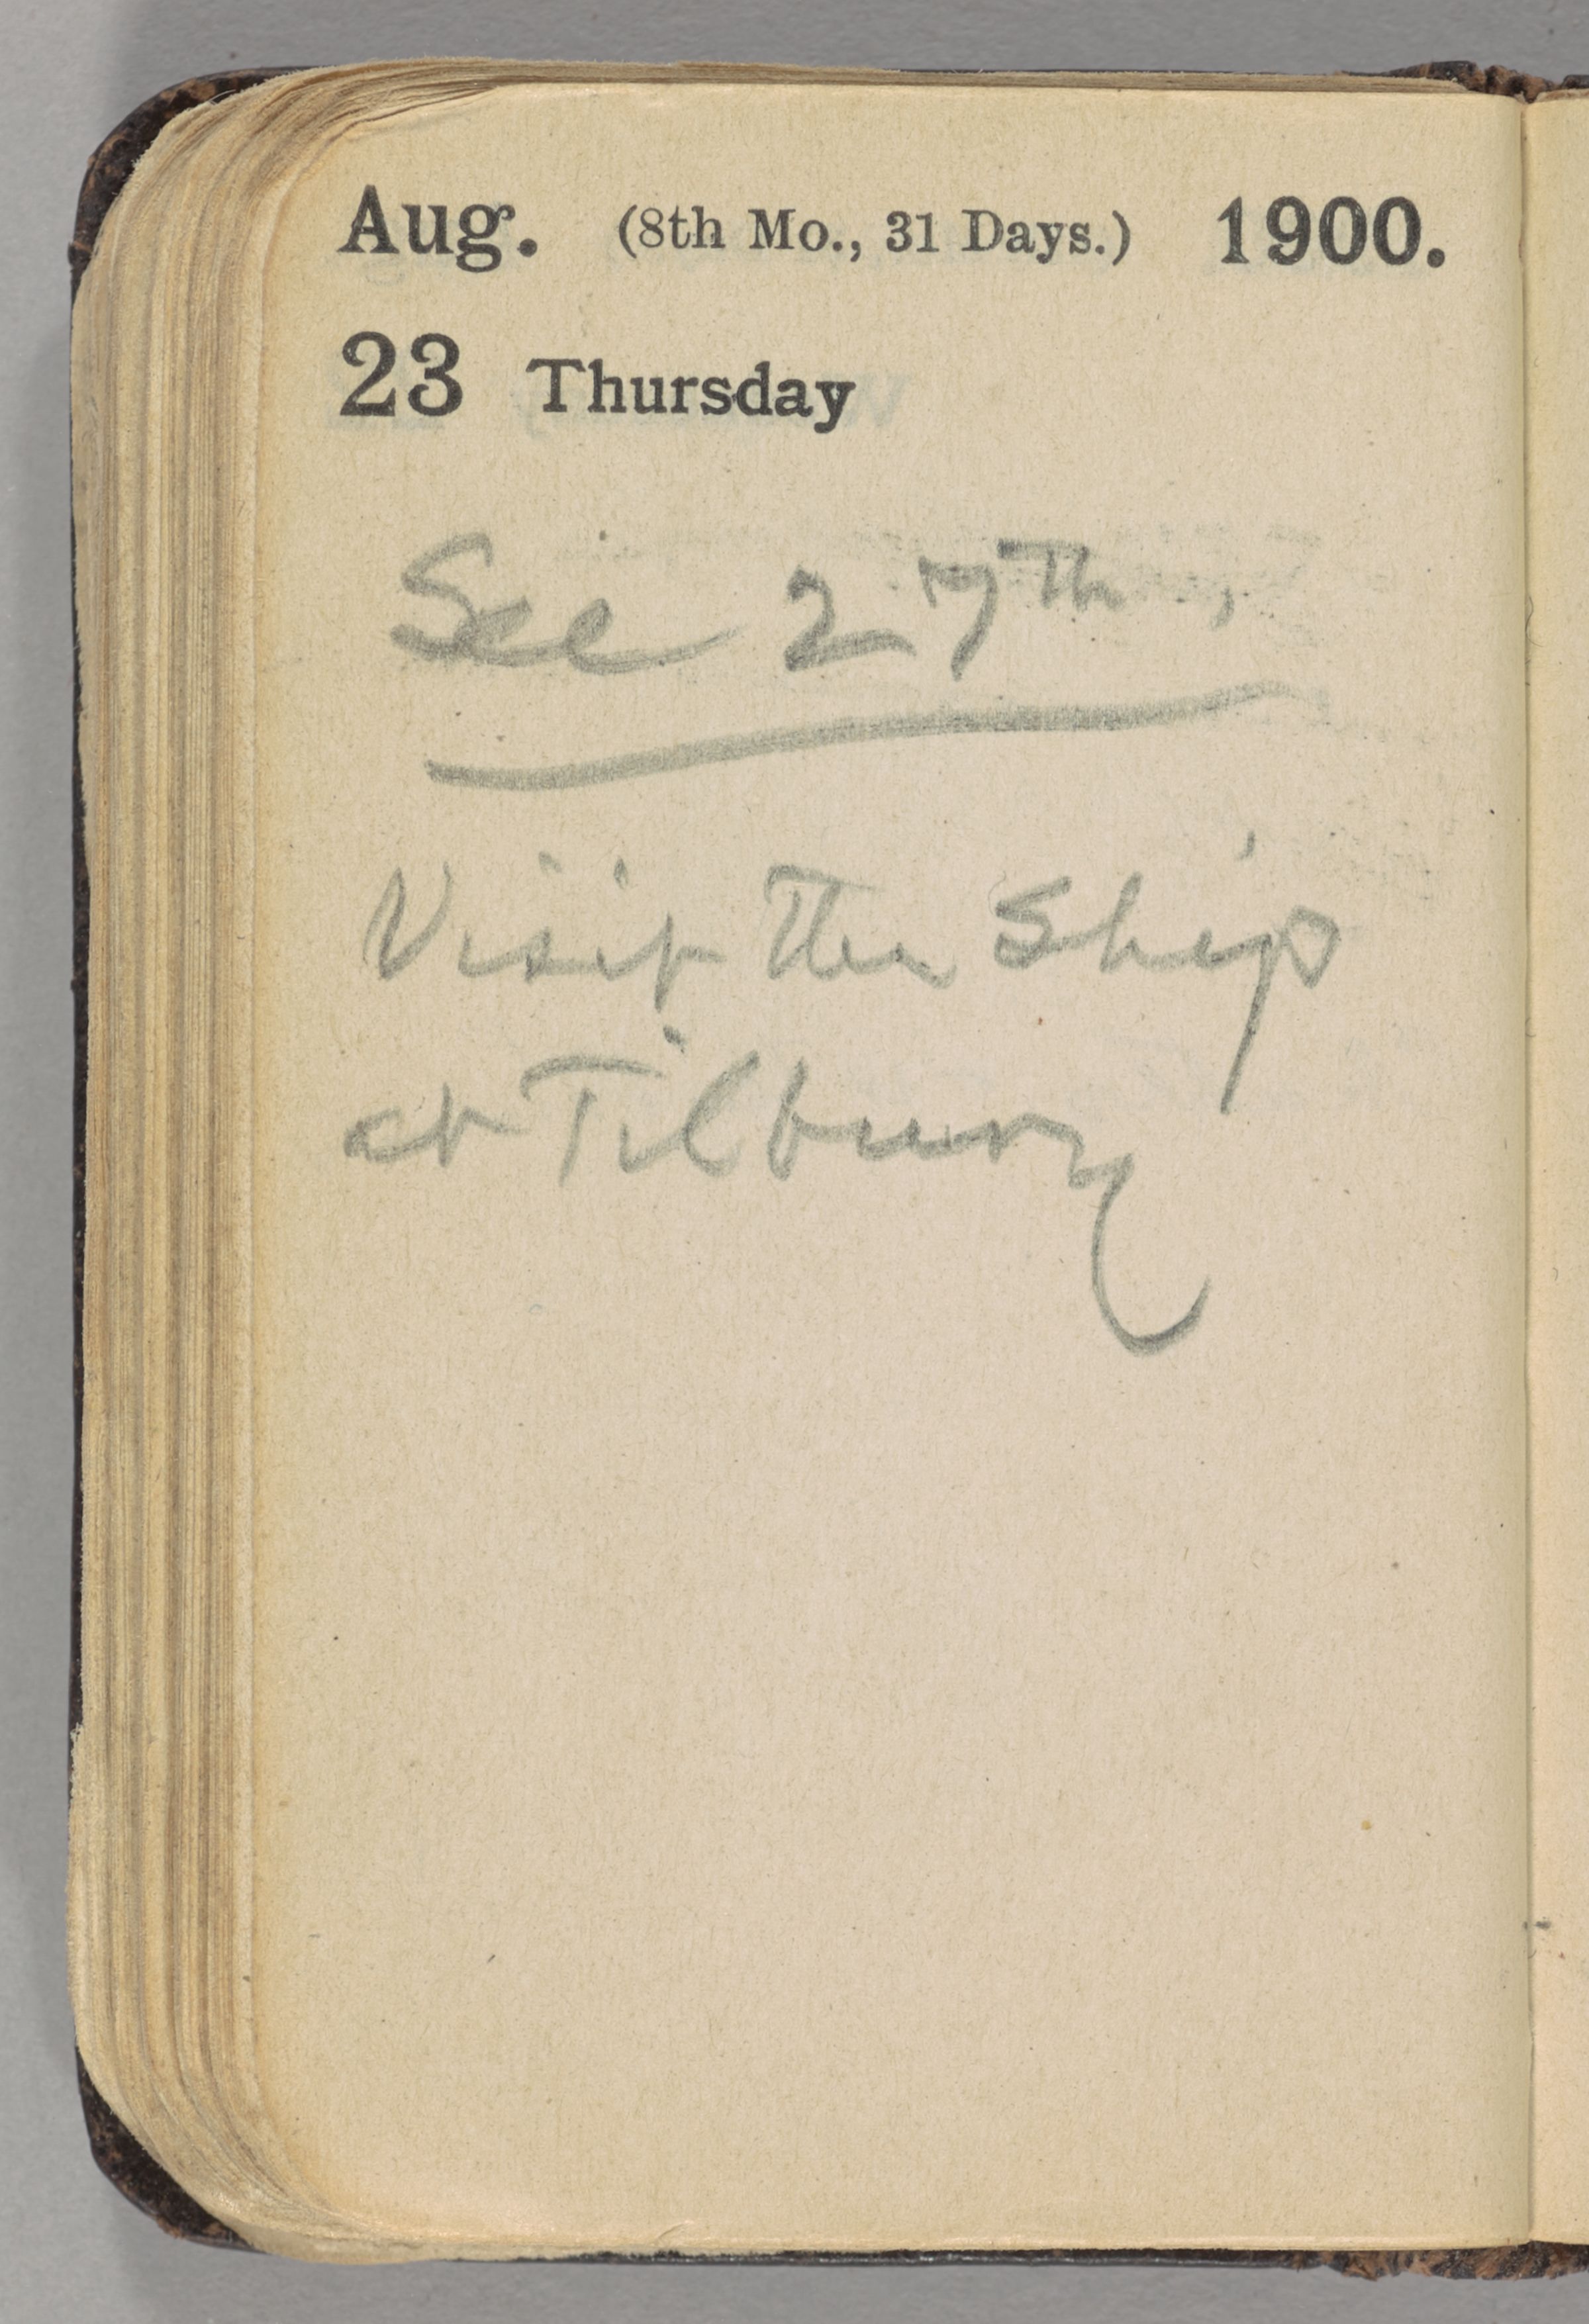 Aug. (8th Mo., 31 Days.) 1900.
23 Thursday
See 27th,
Visit the Ship
at Tilbury